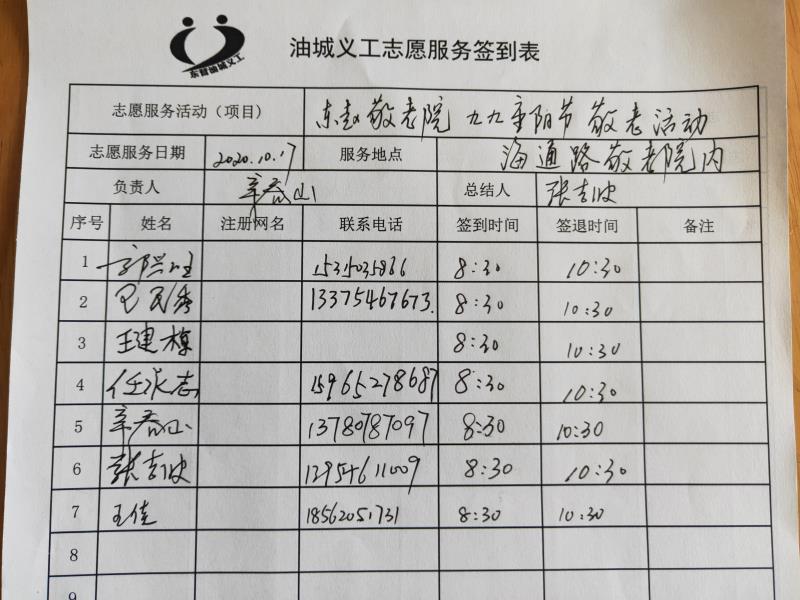 东营油城义工
油城义工志愿服务签到表
志愿服务活动（项目） 东赵敬老院 九九重阳节 敬老活动
志愿服务日期 2020.10.17 服务地点 海通路敬老院内
负责人 辛春山 总结人 张吉波
序号 姓名 注册网名 联系电话 签到时间 签退时间 备注
1 8:30 10:30
2 13375467673. 8:30 10:30
3 王建栋 8:30 10:30
4 任张志 15965278687 8:30 10:30
5 辛春山 13780787097 8:30 10:30
6 张吉波 13954611009 8:30 10:30
7 王佳 18562051731 8:30 10:30
8
9